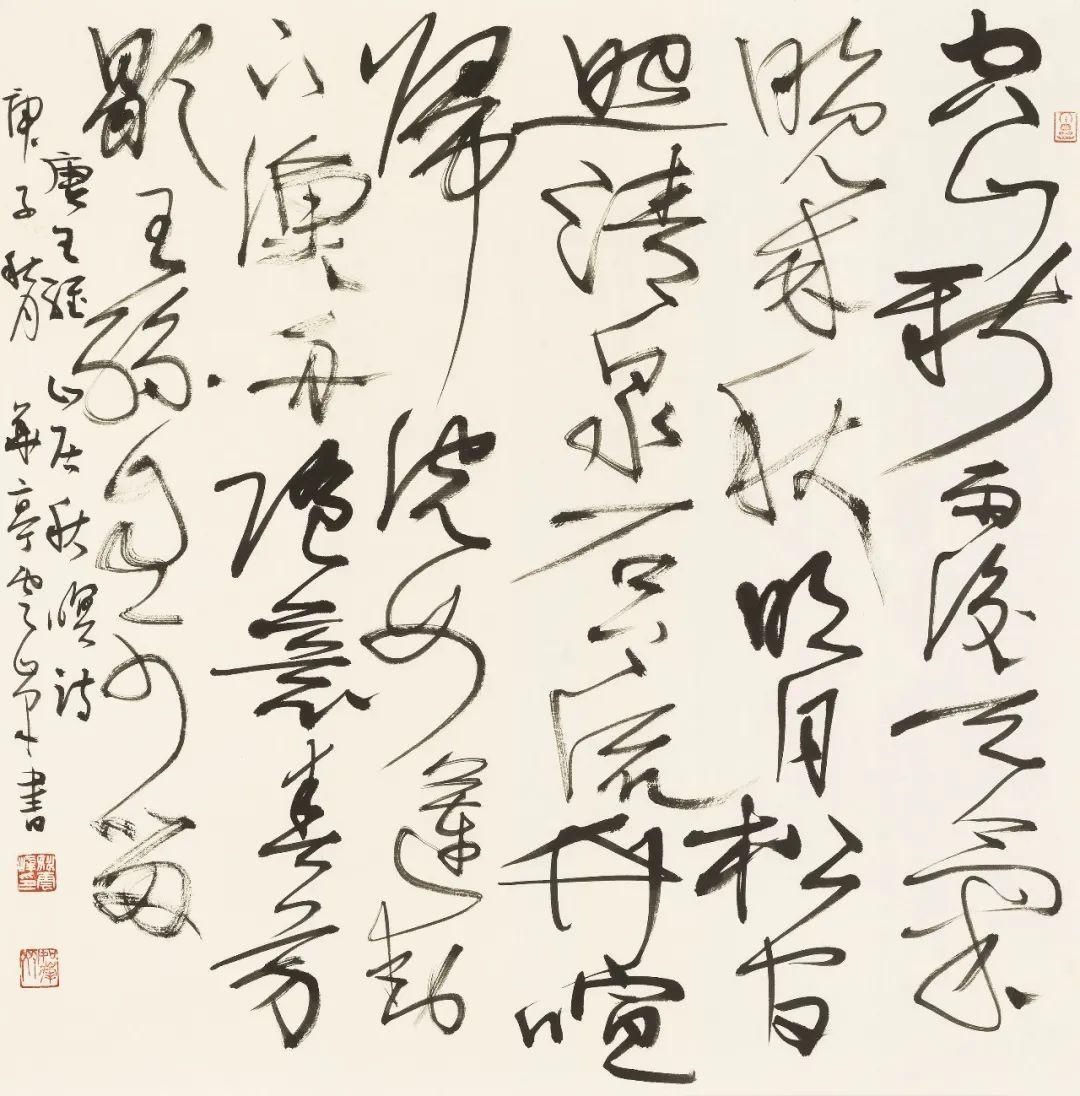 空山新雨後天氣
晚來秋明月松間
照清泉石上流竹喧
歸浣女蓮動
下漁舟隨意春芳
歇王孫自可留
唐王維山居秋暝詩
庚子秋月華亭雲峯書